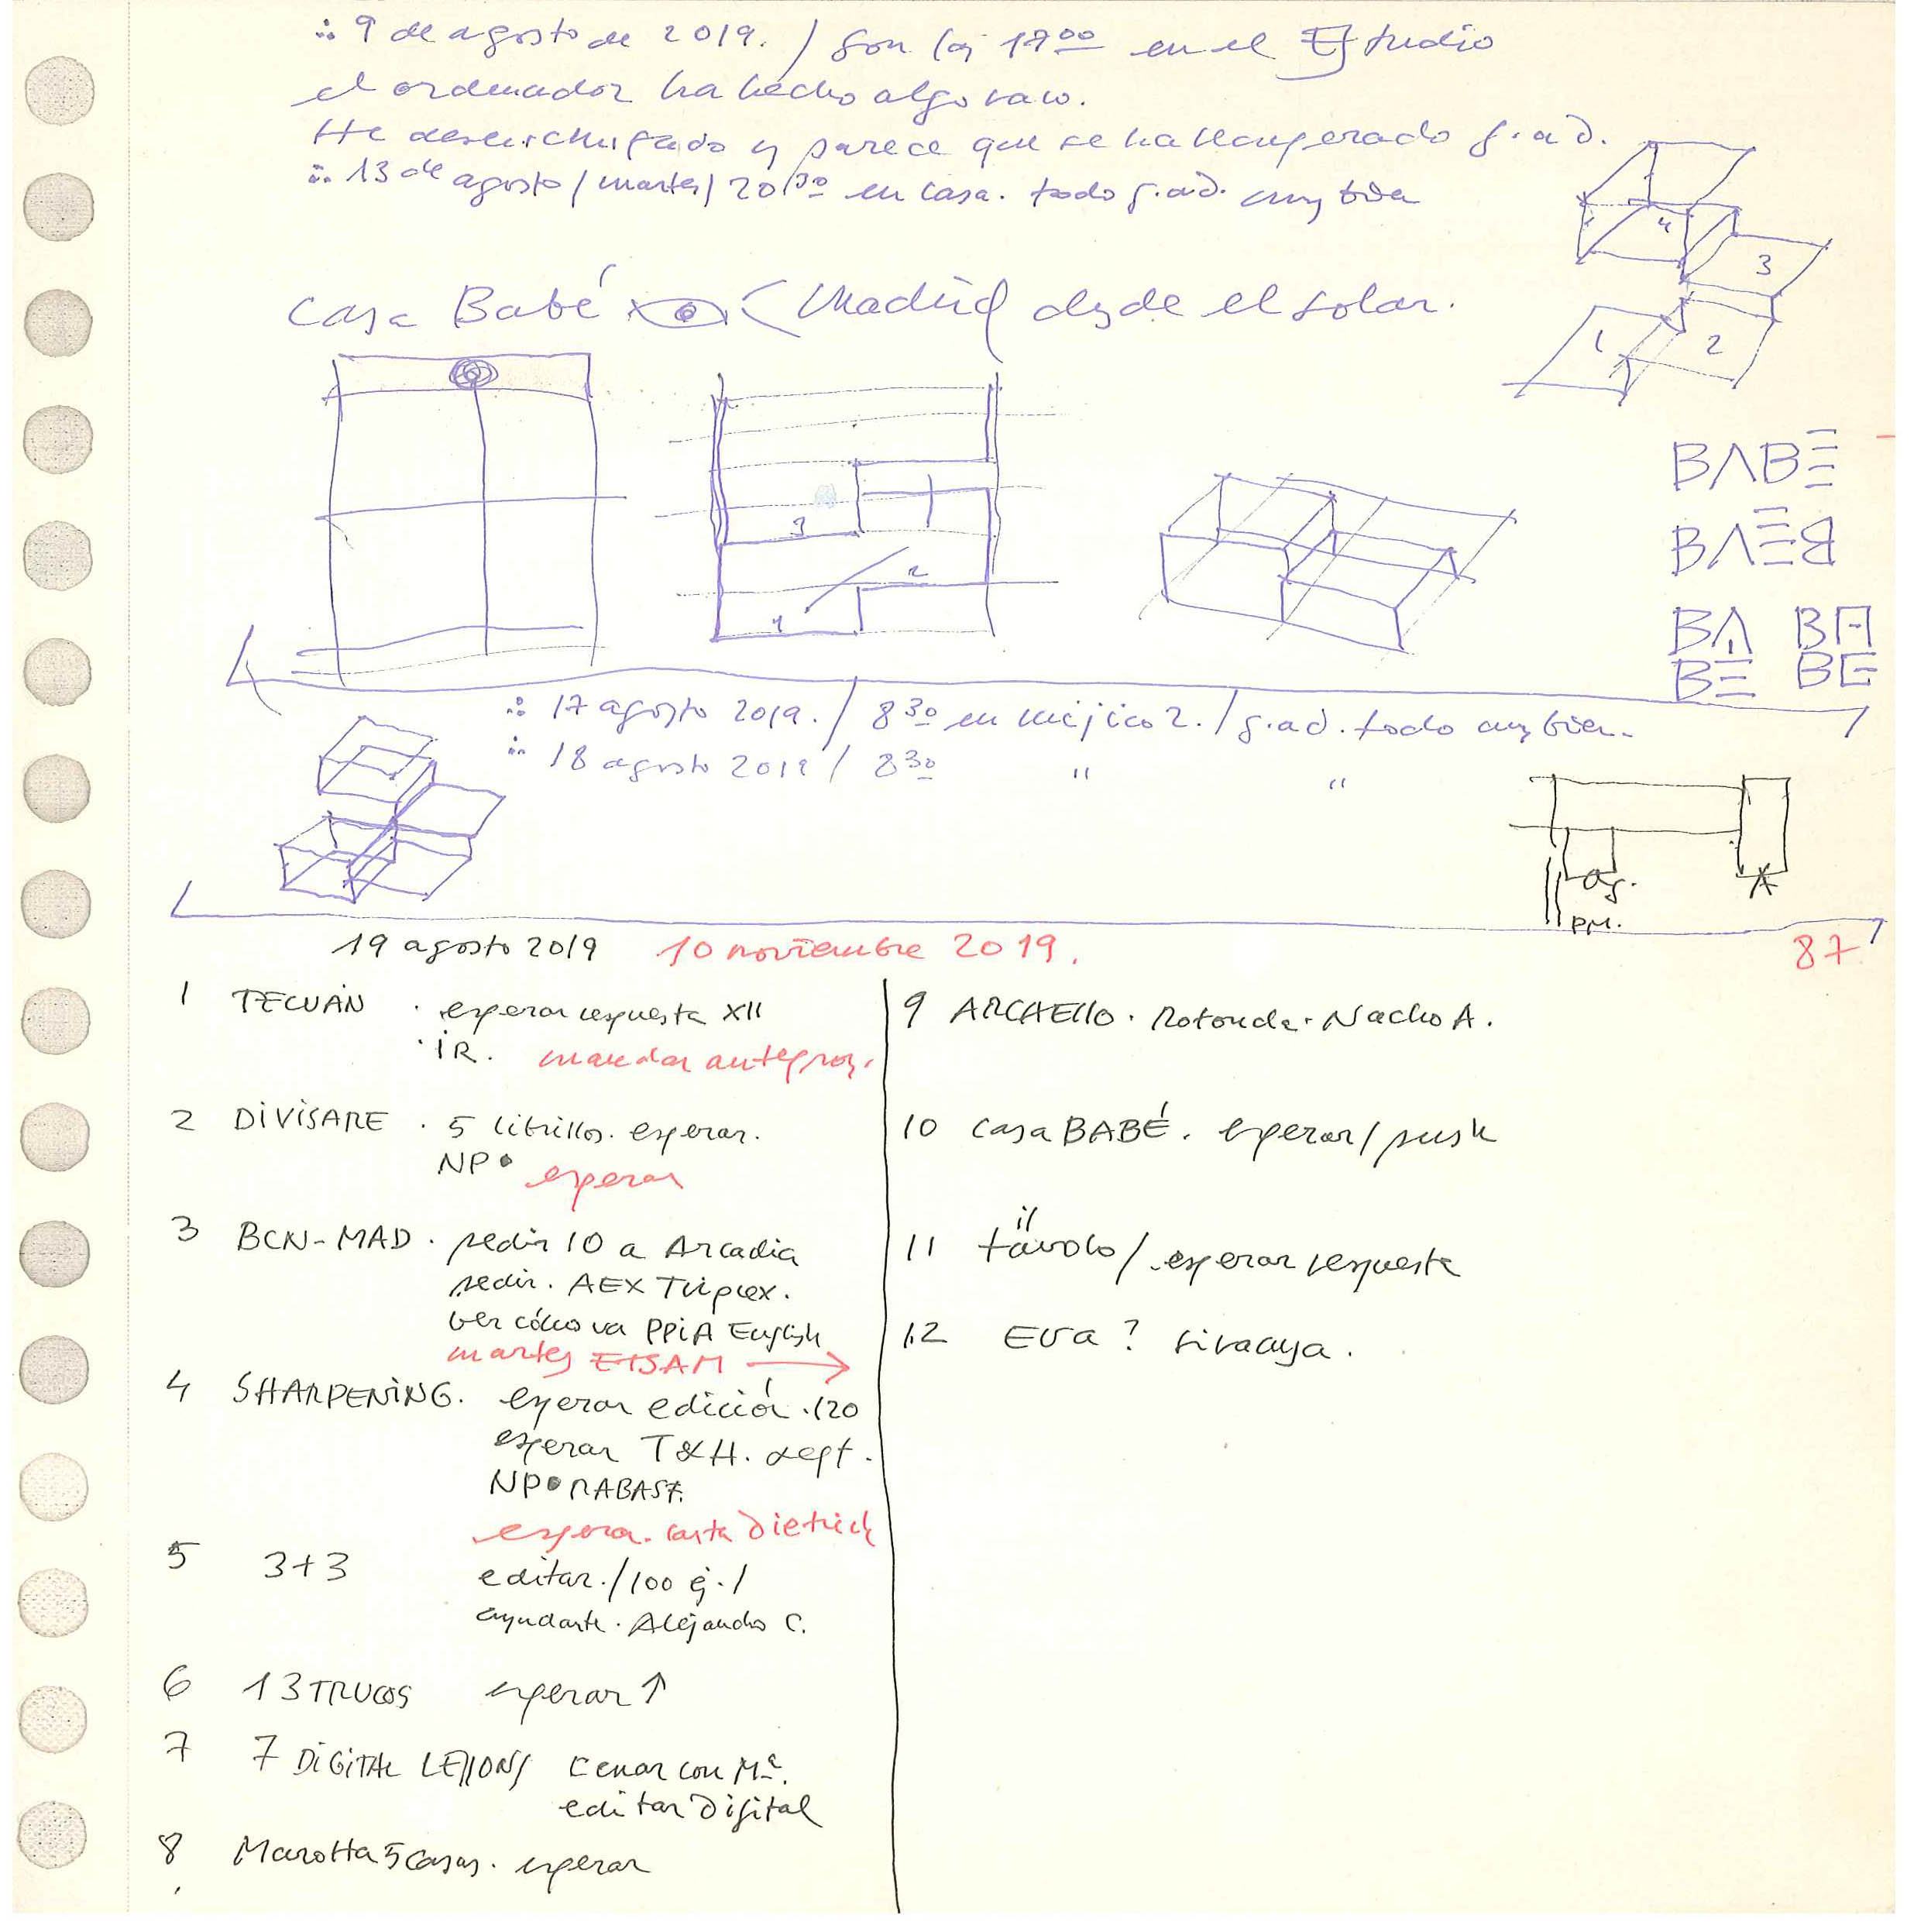 ∴ 9 de agosto de 2019. / son las 17⁰⁰ en el Estudio
el ordenador ha hecho algo raro.
He desenchufado y parece que se ha recuperado g.a.d.
∴ 13 de agosto / martes / 20³⁰ en casa. todo g.a.d. muy bien
4
3
1
2
Casa Babé Madrid desde el solar.
3
2
1
BABE
BAEB
BA BA
BE BE
∴ 17 agosto 2019. / 8³⁰ en Méjico 2. / g.ad. todo muy bien.
∴ 18 agosto 2019 / 8³⁰ " "
A
PM.
19 agosto 2019 10 noviembre 2019. 87
1 TECUÁN · esperar respuesta XII
· IR. mandar anteproy.
2 DIVISARE · 5 librillos. esperar.
NP• esperar
3 BCN-MAD · pedir 10 a Arcadia
pedir. AEX Triplex.
ver cómo va PPIA English
martes ETSAM →
4 SHARPENING. esperar edición. 120
esperar T&H. sept.
NP• RABASF.
espera. carta Dietrich
5 3+3 editar. / 100 ej. /
ayudante. Alejandro C.
6 13 TRUCOS esperar ↑
7 7 DIGITAL LESSONS Cenar con Mª.
editar Digital
8 Marotta 5 casas. esperar
9 ARCHELLO. Rotonda. Nacho A.
10 casa BABÉ. esperar / push
11 il tavolo / esperar respuesta
12 Eva?